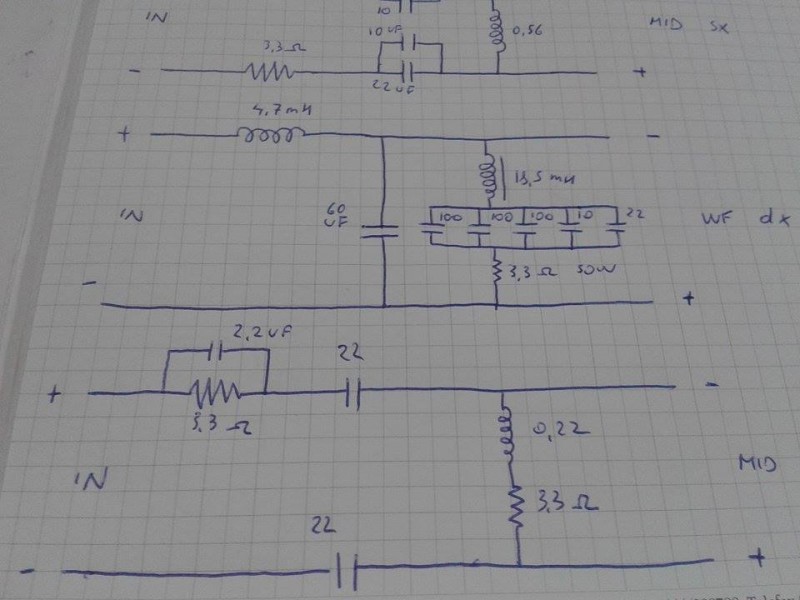 IN
10
0,56
MID SX
10 uF
3,3 Ω
-
+
22 uF
4,7 mH
+
-
13,5 mH
IN
60 uF
100 100 100 10 22
WF dx
3,3 Ω 50W
-
+
2,2 uF
22
+
-
3,3 Ω
0,22
IN
MID
3,3 Ω
22
-
+